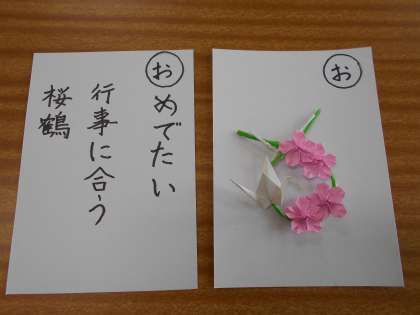 おめでたい
行事に合う
桜鶴
お